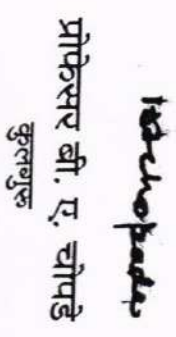 प्रोफेसर बी. ए. चोपडे
कुलगुरू